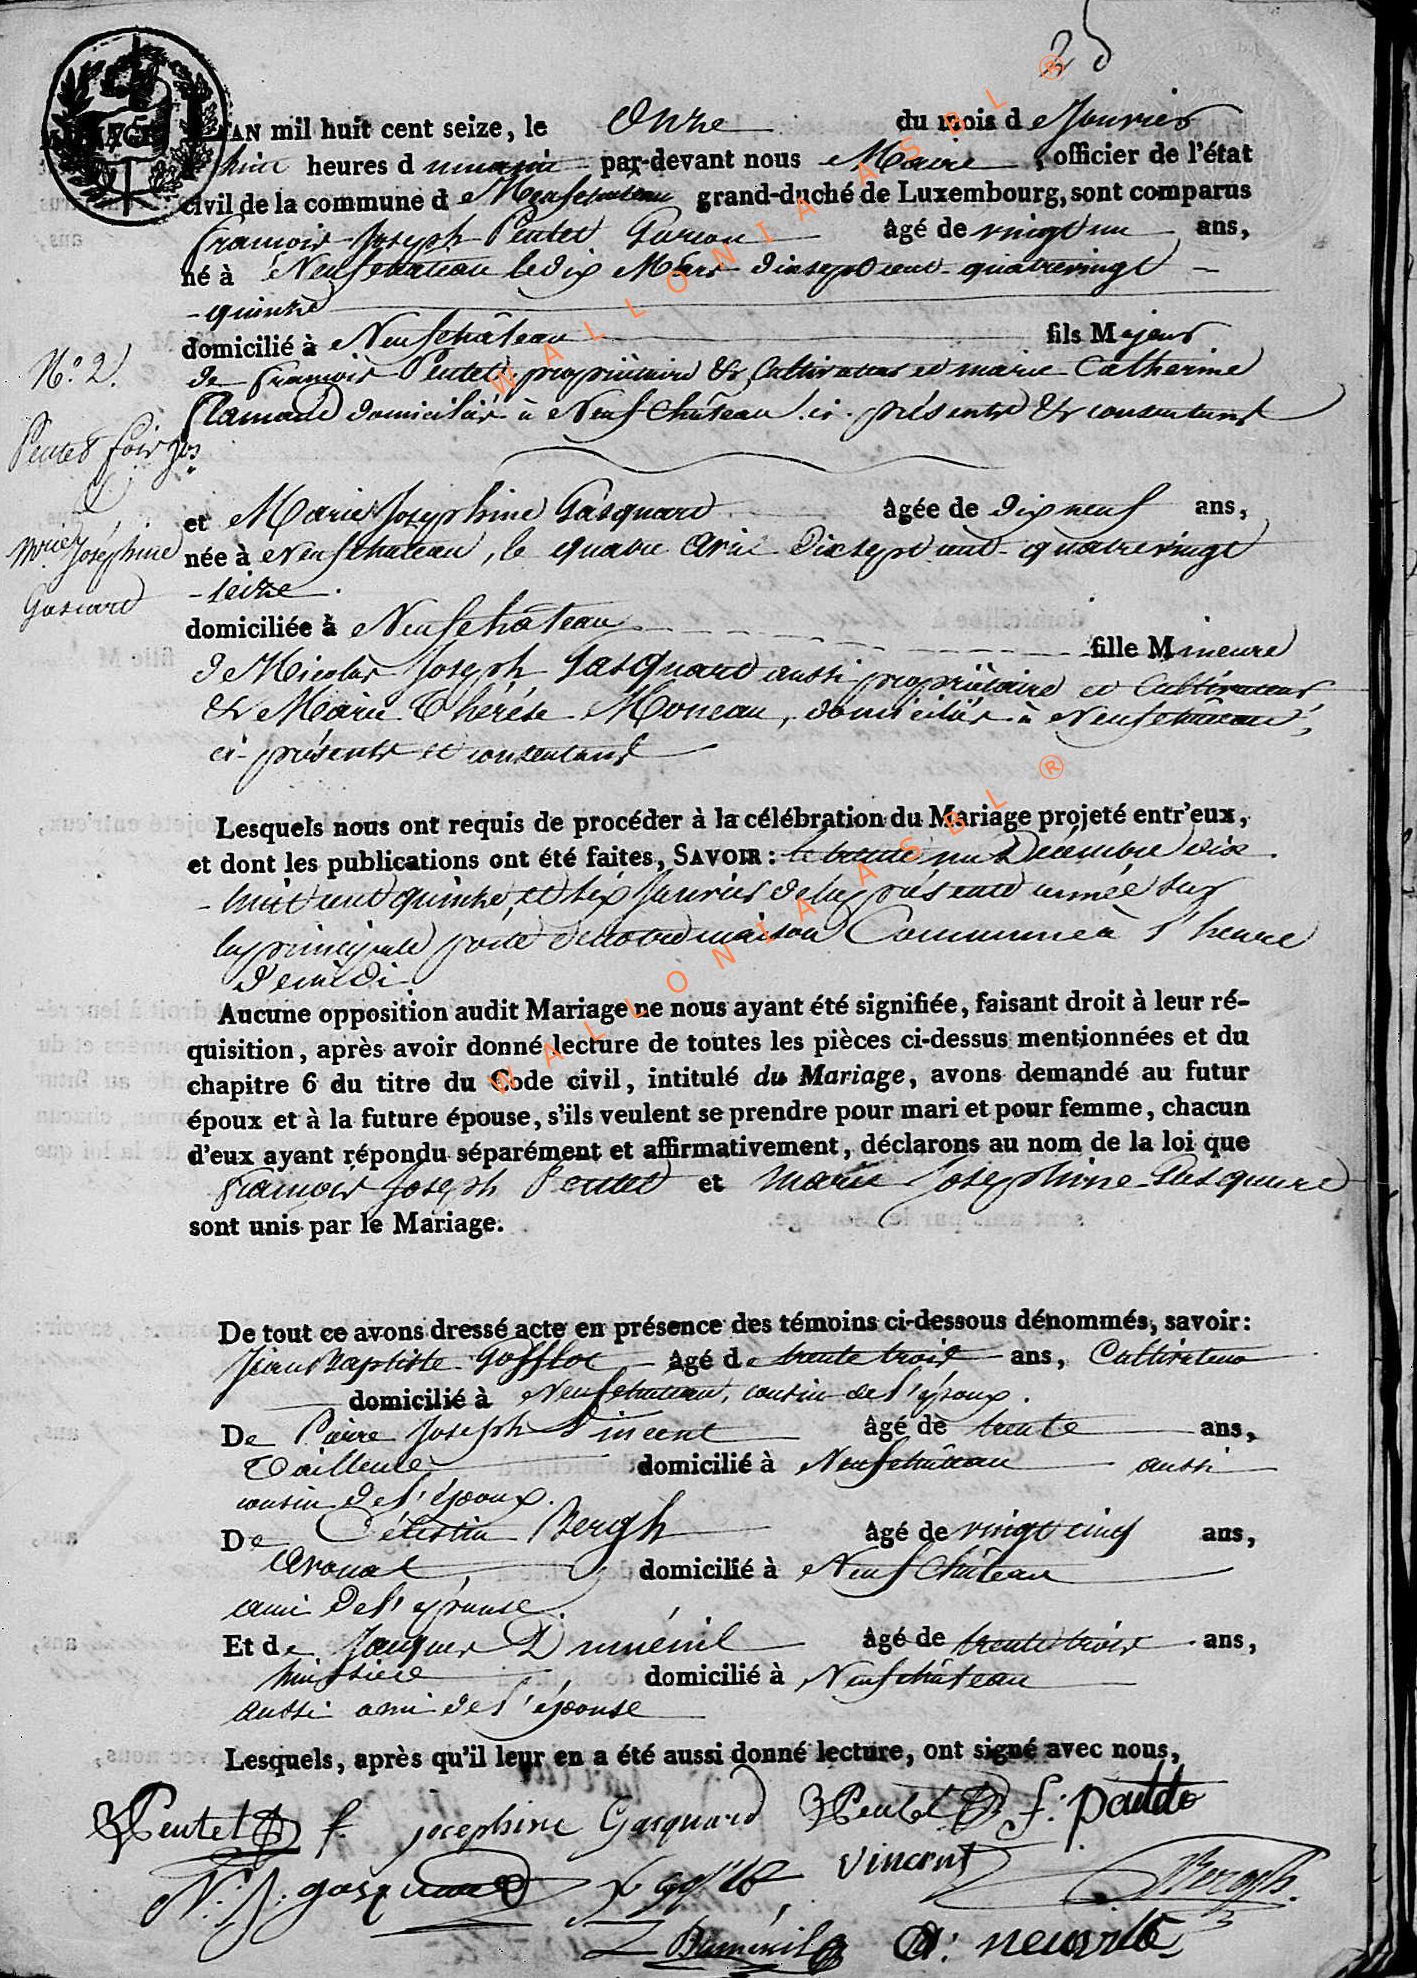 25
L'AN mil huit cent seize, le onze du mois de Janvier
huit heures du matin par-devant nous Maire, officier de l'état
civil de la commune de Neufchateau grand-duché de Luxembourg, sont comparus
François Joseph Pentet Garçon âgé de vingt un ans,
né à Neufchateau le dix Mars dix sept cent quatrevingt
- quinze
domicilié à Neufchâteau fils Majeur
N.° 2.
de François Pentet propriétaire & Cultivateur et marie Catherine
Flamand domiciliés à Neufchâteau ci-présents & consentants
Pentet fois jos.
&
Marie Joséphine
Gascard
et Marie Josephine Gasquard âgée de dix neuf ans,
née à Neufchateau, le quatre avril dix sept cent quatrevingt
- seize.
domiciliée à Neufchâteau fille Mineure
de Nicolas Joseph Gasquard aussi propriétaire et Cultivateur
& Marie Thérése Monceau, domiciliés à Neufchâteau,
ci-présents et consentants
Lesquels nous ont requis de procéder à la célébration du Mariage projeté entr'eux,
et dont les publications ont été faites, SAVOIR : le trente un Décembre dix
- huit cent quinze, et six Janvier de la présente année sur
la principale porte de notre maison Commune à l'heure
de midi
Aucune opposition audit Mariage ne nous ayant été signifiée, faisant droit à leur ré-
quisition, après avoir donné lecture de toutes les pièces ci-dessus mentionnées et du
chapitre 6 du titre du Code civil, intitulé du Mariage, avons demandé au futur
époux et à la future épouse, s'ils veulent se prendre pour mari et pour femme, chacun
d'eux ayant répondu séparément et affirmativement, déclarons au nom de la loi que
François Joseph Pentet et Marie Josephine Gasquard
sont unis par le Mariage.
De tout ce avons dressé acte en présence des témoins ci-dessous dénommés, savoir:
Jean Baptiste Gofflot Agé de trente trois ans, Cultivateur
domicilié à Neufchateau, cousin de l'époux.
De Pierre Joseph Vincent âgé de trente ans,
Tailleur domicilié à Neufchâteau aussi
cousin de l'époux.
De Célestin Bergh âgé de vingt cinq ans,
Avouat, domicilié à Neufchâteau
ami de l'épouse.
Et de Jacques Duménil âgé de trente trois ans,
huissier domicilié à Neufchâteau
aussi ami de l'épouse
Lesquels, après qu'il leur en a été aussi donné lecture, ont signé avec nous,
Pentet f. josephine Gasquard Pentet f:
N: J: gasquard vincent Bergh.
Duménil
WALLONIA ASBL ®
WALLONIA ASBL ®